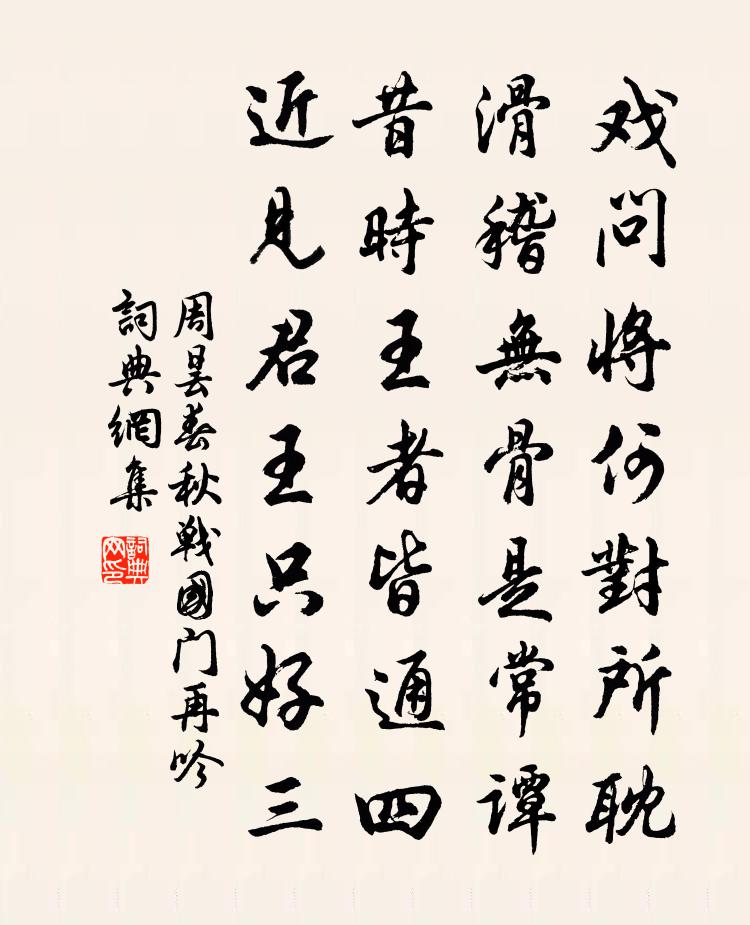 戏問将何對所耽
滑稽無骨是常譚
昔時王者皆通四
近見君王只好三
周昙春秋戰國门再吟
詞典網集
詞典网印